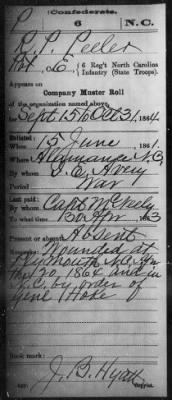 P
Confederate.
6 N.C.
R. P. Peeler
Pvt, Co. E, 6 Reg't North Carolina
Infantry (State Troops).
Appears on
Company Muster Roll
of the organization named above,
for Sept 1 5 to Oct 31, 1864.
Enlisted:
When 15 June, 1861.
Where Alamance N.C.
By whom I. E. Avery
Period War
Last paid:
By whom Capt. McNeely
To what time 30 Apr, 1863
Present or absent Absent
Remarks: Wounded at
Plymouth N.C. Apr
the 20, 1864 and in
N.C. by order of
Genl Hoke
Book mark:
J. B. Hyatt
Copyist.